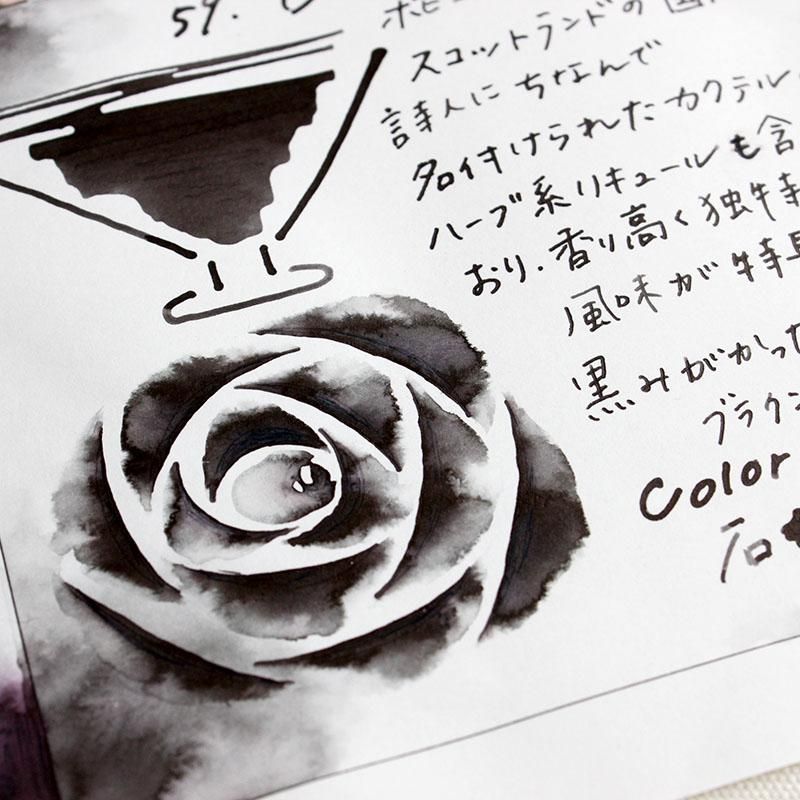 59.
ボビー
スコットランドの国
詩人にちなんで
名付けられたカクテル。
ハーブ系リキュールも含
おり、香り高く独特
風味が特
黒みがかった
ブラウン
Color
石